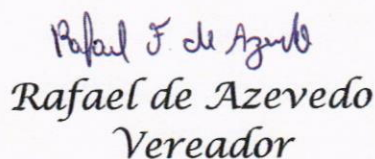 Rafael F. de Azevedo
Rafael de Azevedo
Vereador